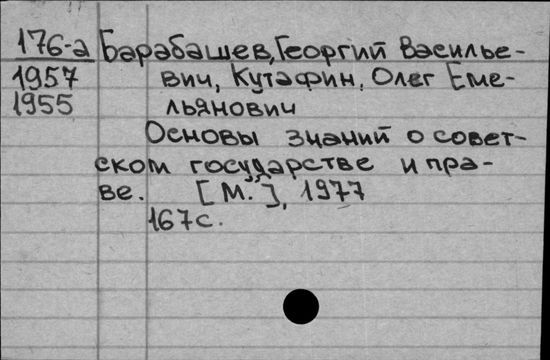 176-а Барабашев, Георгий Василье-
1957 вич, Кутафин, Олег Еме-
1955 льянович
Основы знаний о совет-
ском государстве и пра-
ве. [М."], 1977
167с.